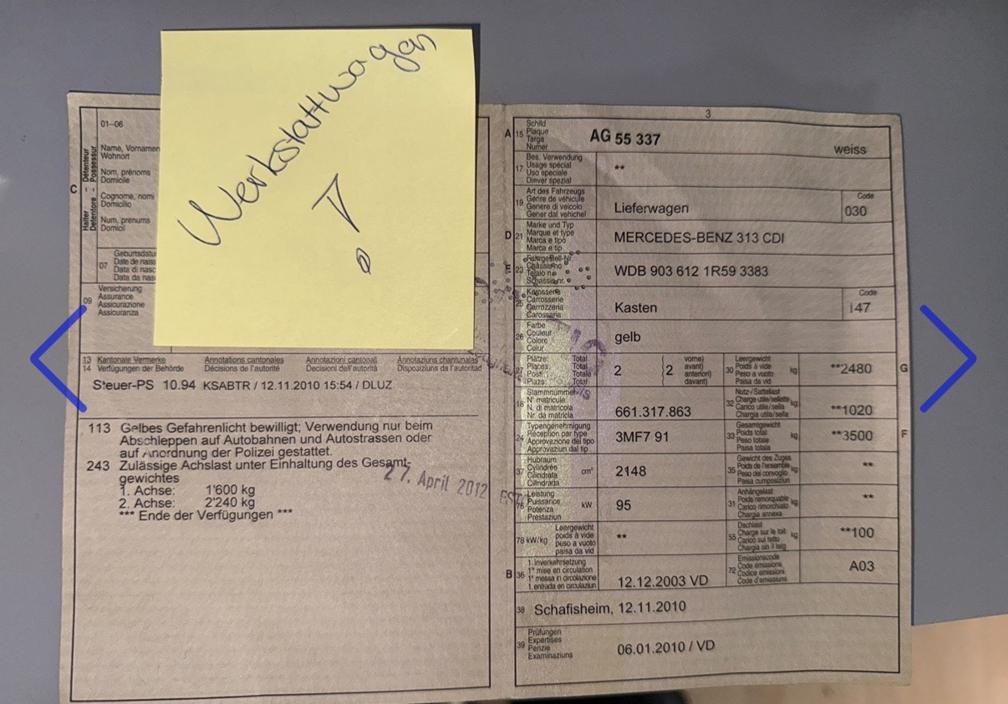 Werkstattwagen
!
01–06
Name, Vornamen
Wohnort
Nom, prénoms
Domicile
Cognome, nomi
Domicilio
Num, prenums
Domicil
C
Halter - Détenteur
Detentore - Possessur
07
Geburtsdatu
Date de nais
Data di nasc
Data da nasc
09
Versicherung
Assurance
Assicurazione
Assicuranza
13 Kantonale Vermerke Annotations cantonales Annotazioni cantonali Annotaziuns chantunalas
14 Verfügungen der Behörde Décisions de l'autorité Decisioni dell'autorità Disposiziuns da l'autoritad
Steuer-PS 10.94 KSABTR / 12.11.2010 15:54 / DLUZ
113 Gelbes Gefahrenlicht bewilligt; Verwendung nur beim
Abschleppen auf Autobahnen und Autostrassen oder
auf Anordnung der Polizei gestattet.
243 Zulässige Achslast unter Einhaltung des Gesamt-
gewichtes
1. Achse: 1'600 kg
2. Achse: 2'240 kg
*** Ende der Verfügungen ***
27. April 2012
3
A 15
Schild
Plaque
Targa
Numer
AG 55 337 weiss
17
Bes. Verwendung
Usage spécial
Uso speciale
Diever spezial
**
19
Art des Fahrzeugs
Genre de véhicule
Genere di veicolo
Gener dal vehichel
Lieferwagen
Code
030
D 21
Marke und Typ
Marque et type
Marca e tipo
Marca e tip
MERCEDES-BENZ 313 CDI
E 23
WDB 903 612 1R59 3383
25
Karosserie
Carrosserie
Carrozzeria
Carossaria
Kasten
Code
147
26
Farbe
Couleur
Colore
Colur
gelb
Plätze: Total
Places: Total
Posti: Totale
Plazs: Total
2 (2
vorne)
avant)
anteriori)
davant)
30
Leergewicht
Poids à vide
Peso a vuoto
Paisa da vid
kg
**2480
G
18
Stammnummer
N° matricule
N. di matricola
Nr. da matricla
661.317.863
32
Nutz-/Sattellast
Charge utile/sellette
Carico utile/sella
Chargia utila/sella
kg
**1020
24
Typengenehmigung
Réception par type
Approvazione del tipo
Approvaziun dal tip
3MF7 91
33
Gesamtgewicht
Poids total
Peso totale
Paisa totala
kg
**3500
F
37
Hubraum
Cylindrée
Cilindrata
Cilindrada
cm³
2148
35
Gewicht des Zuges
Poids de l'ensemble
Peso del convoglio
Paisa cumposiziun
kg
**
76
Leistung
Puissance
Potenza
Prestaziun
kW
95
31
Anhängelast
Poids remorquable
Carico rimorchiato
Chargia annexa
kg
**
78 kW/kg
Leergewicht
poids à vide
peso a vuoto
paisa da vid
**
55
Dachlast
Charge sur le toit
Carico sul tetto
Chargia sin il tetg
kg
**100
B 36
1. Inverkehrsetzung
1re mise en circulation
1a messa in circolazione
1. entrada en circulaziun
12.12.2003 VD
72
Emissionscode
Code émissions
Codice emissioni
Code d'emissiuns
A03
38 Schafisheim, 12.11.2010
39
Prüfungen
Expertises
Perizie
Examinaziuns
06.01.2010 / VD